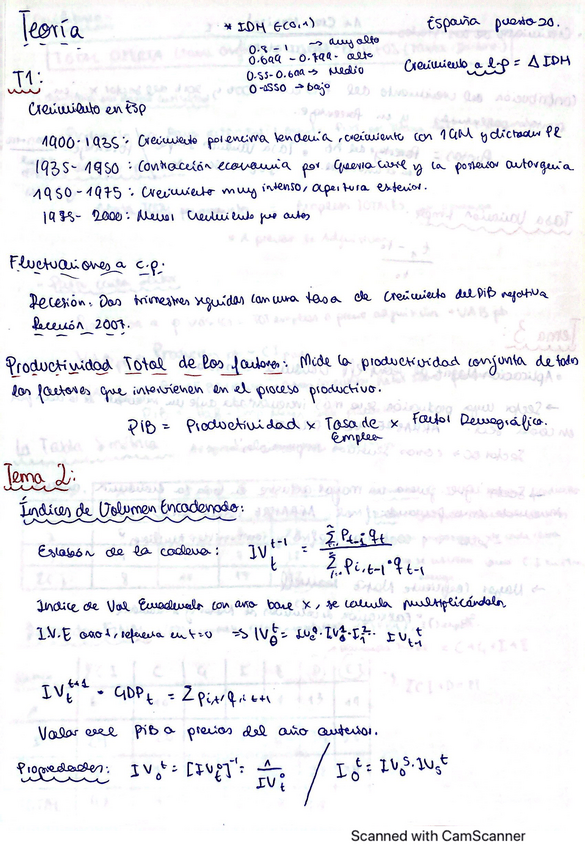 Teoría
* IDH ∈(0,1)
0.8 - 1 → muy alto
0.699 - 0.799 - alto
0.55 - 0.699 → Medio
0 - 0550 → bajo
España puesto 20.
Crecimiento a l.p = Δ IDH
T1:
Crecimiento en Esp
1900 - 1935: Crecimiento por encima tendencia, crecimiento con 1GM y dictador PR
1935 - 1950: Contracción economía por Guerra Civil y la posterior autarquía
1950 - 1975: Crecimiento muy intenso, apertura exterior.
1975 - 2000: Menor crecimiento que antes
Fluctuaciones a c.p.
Recesión: Dos trimestres seguidos con una tasa de crecimiento del PIB negativa
Recesión 2007.
Productividad Total de los factores: Mide la productividad conjunta de todos
los factores que intervienen en el proceso productivo.
PIB = Productividad x Tasa de Empleo x Factor Demográfico.
Tema 2:
Índices de Volumen Encadenado:
Eslabón de la cadena: IV t t-1 = Σ Pt-1 · qt / Σ Pi,t-1 · qt-1
Indice de Vol Encadenado con año base x, se calcula multiplicándolos
I.V.E año t, referencia en t=0 ⇒
IV t t+1 · GDPt = Σ Pi,t · qi,t+1
Valorar ese PIB a precios del año anterior.
Propiedades: IV₀ᵗ = [IVₜ⁰]⁻¹ = 1 / IVₜ⁰ / I₀ᵗ = IV₀ˢ · IVₛᵗ
Scanned with CamScanner